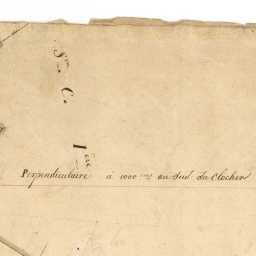 S.on C. 1ère
Perpendiculaire à 1000 m.es au Sud du Clocher